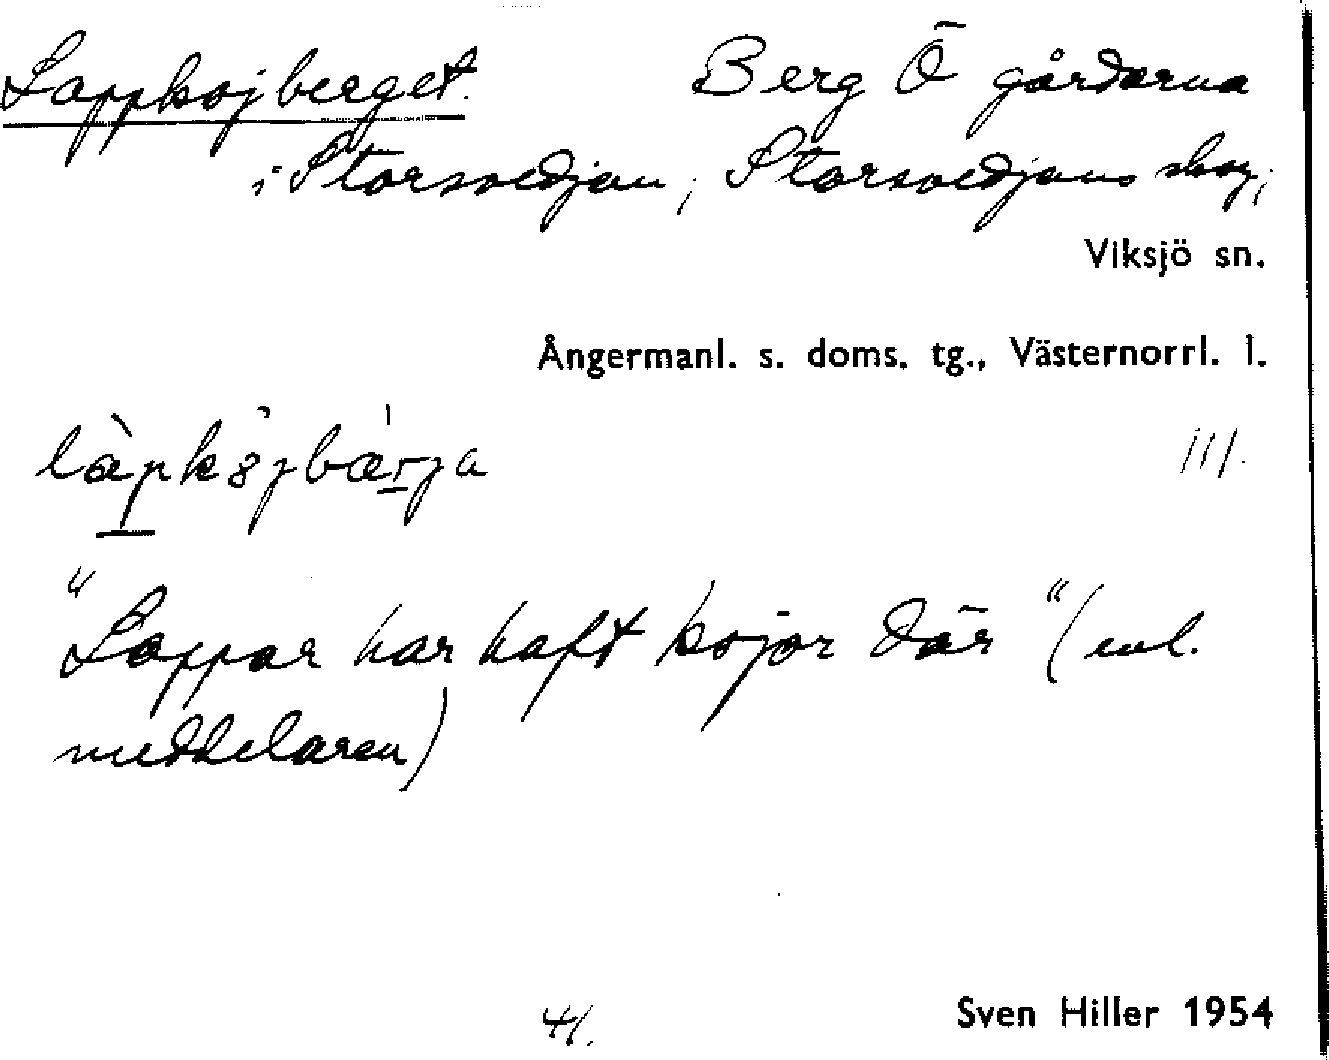 Lappkojberget. Berg Ö gårdarna
i Storsvedjan; Storsvedjans skog;
Viksjö sn.
Ångermanl. s. doms. tg., Västernorrl. l.
III.
"Lappar har haft kojor där" (enl.
meddelaren)
41. Sven Hiller 1954